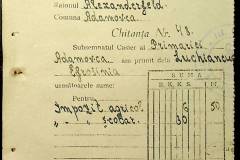 Raionul Alexanderfeld
Comuna Adamovca
Chitanţa Nr. 48.
Subsemnatul Casier al Primăriei
Adamovca am primit dela Luchianov
Efrosinia
următoarele sume:
SUMA
Pentru
Impozit agricol 6 50
" " şcolar. 30